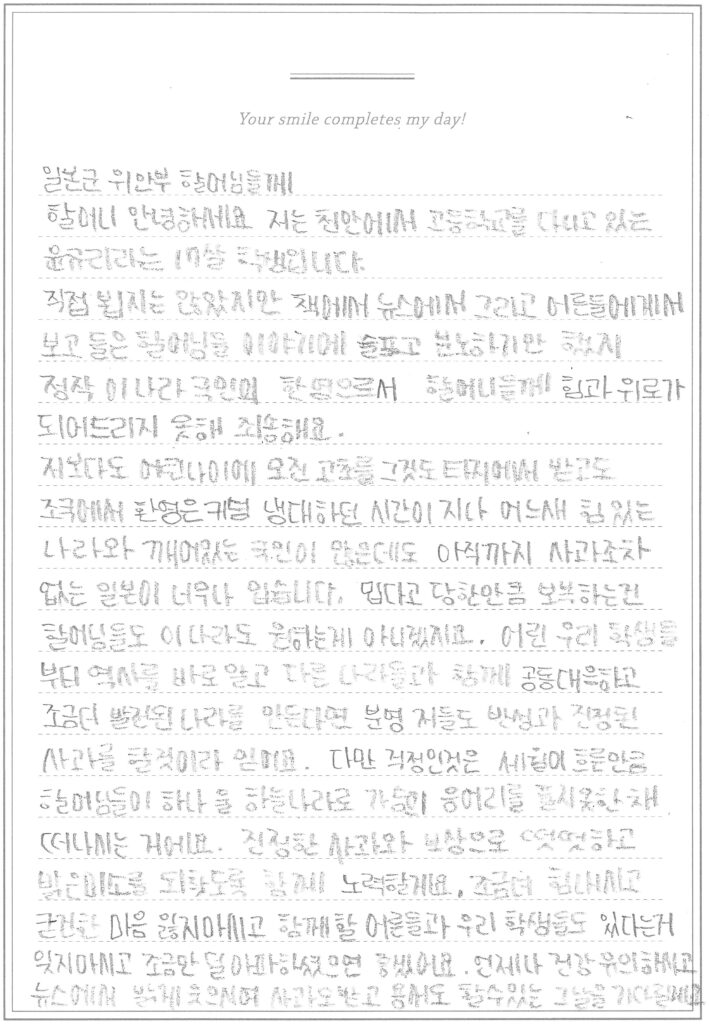 Your smile completes my day!
일본군 위안부 할머님들께
할머니 안녕하세요 저는 천안에서 고등학교를 다니고 있는
윤규리라는 17살 학생입니다.
직접 뵙지는 않았지만 책에서 뉴스에서 그리고 어른들에게서
보고 들은 할머님들 이야기에 슬프고 분노하기만 했지
정작 이나라 국민의 한명으로서 할머니들께 힘과 위로가
되어드리지 못해 죄송해요.
저보다도 어린나이에 오진 고초를 그것도 타지에서 받고도
조국에서 환영은커녕 냉대하던 시간이 지나 어느새 힘 있는
나라와 깨어있는 국민이 많은데도 아직까지 사과조차
없는 일본이 너무나 밉습니다. 밉다고 당한만큼 보복하는건
할머님들도 이 나라도 원하는게 아니겠지요. 어린 우리 학생들
부터 역사를 바로 알고 다른 나라들과 함께 공동대응하고
조금더 발전된 나라를 만든다면 분명 저들도 반성과 진정된
사과를 할것이라 믿어요. 다만 걱정인것은 세월이 흐른만큼
할머님들이 하나 둘 하늘나라로 가슴의 응어리를 풀지못한 채
떠나시는 거에요. 진정한 사과와 보상으로 떳떳하고
밝은미소를 되찾도록 함께 노력할게요. 조금더 힘내시고
굳건한 마음 잃지마시고 함께할 어른들과 우리 학생들도 있다는거
잊지마시고 조금만 덜 아파하셨으면 좋겠어요. 언제나 건강 유의하시고
뉴스에서 밝게 웃으시며 사과도받고 용서도 할수있는 그날을기다릴게요